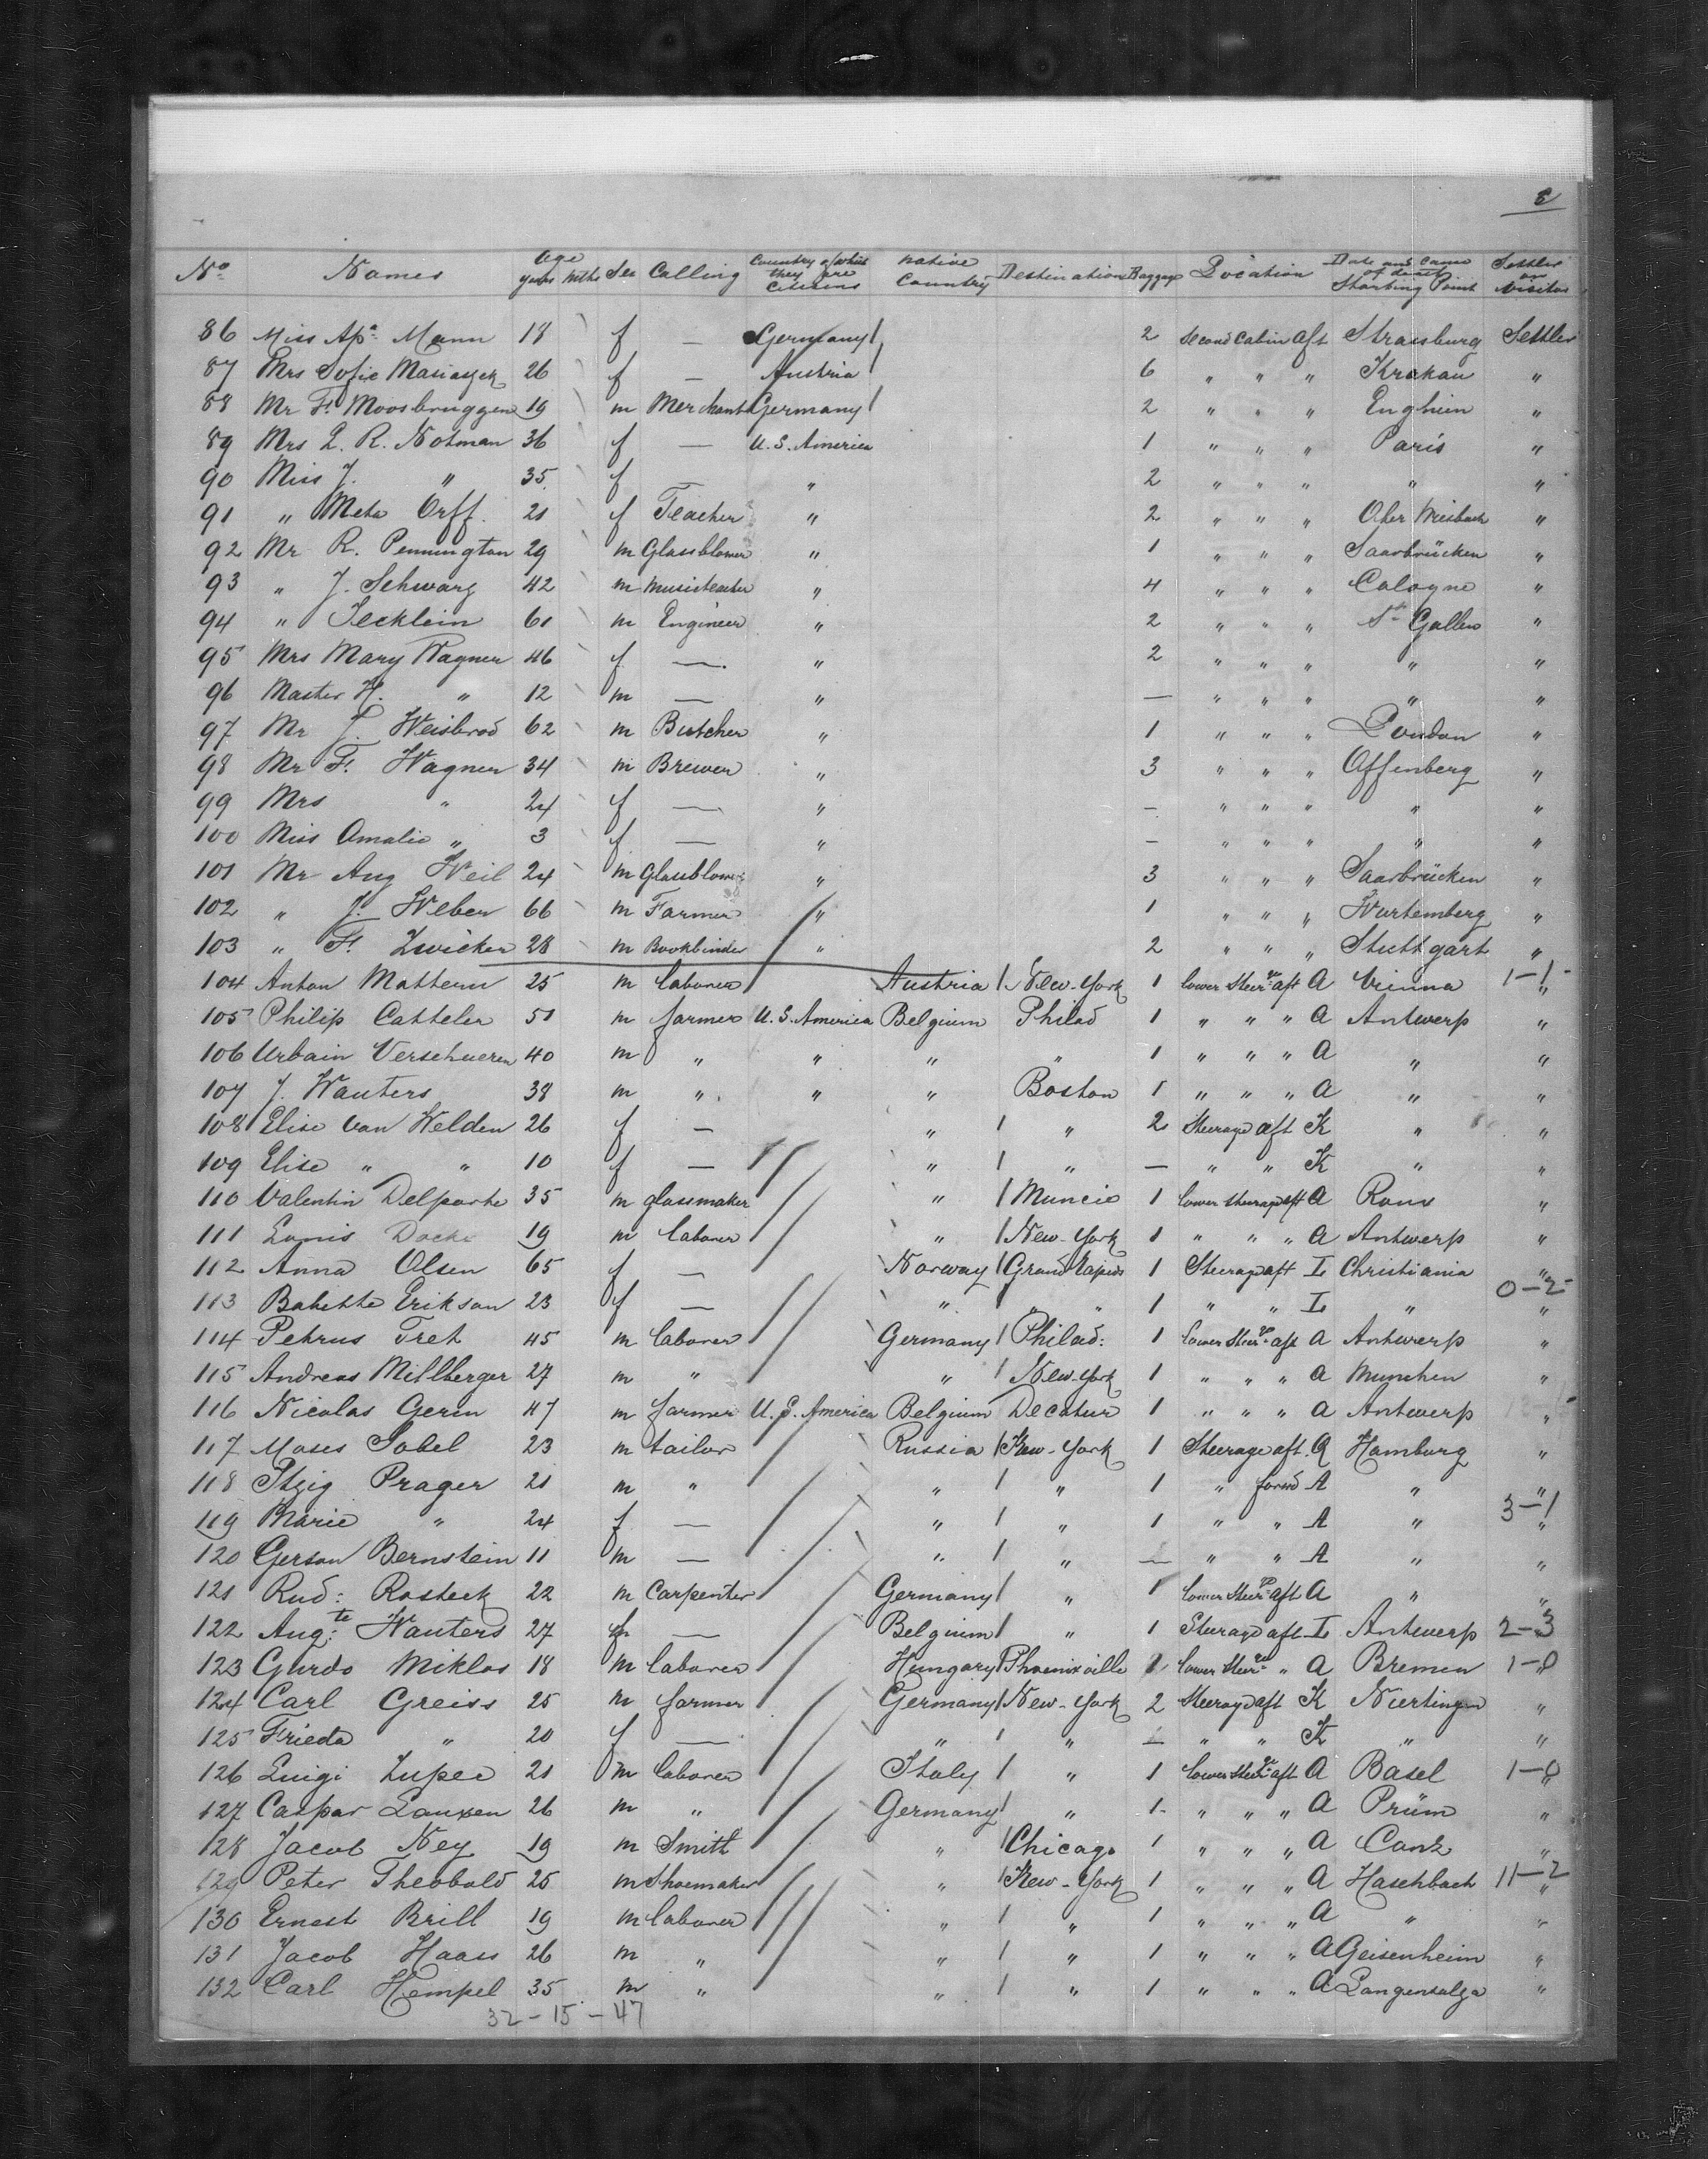 8
No Names Age years Mths Sex Calling Country of which they are Citizens Native Country Destination Baggage Location Date and Cause of death Starting Point Settler or Visitor
86 Miss Mann 18 f — Germany 2 Second Cabin aft Strassburg Settler
87 Mrs Sofie 26 f — Austria 6 " " " Krakau "
88 Mr Fr Moosbruggen 19 m Merchant Germany 2 " " " Enghien "
89 Mrs L. R. Notman 36 f — U.S. America 1 " " " Paris "
90 Miss J. " 35 f " 2 " " " " "
91 " Meta Orff. 21 f Teacher " 2 " " " Ober "
92 Mr R. Pennington 29 m Glassblower " 1 " " " Saarbrücken "
93 " J. Schwarz 42 m Musicteacher " 4 " " " Cologne "
94 " Jecklein 61 m Engineer " 2 " " " St Gallen "
95 Mrs Mary Wagner 46 f — " 2 " " " " "
96 Master H. " 12 m — " — " " " " "
97 Mr J. Weisbrod 62 m Butcher " 1 " " " London "
98 Mr Fr. Wagner 34 m Brewer " 3 " " " Offenberg "
99 Mrs " 24 f — " — " " " " "
100 Miss Amalie " 3 f — " — " " " " "
101 Mr Aug Weil 24 m Glassblower " 3 " " " Saarbrücken "
102 " J. Weber 66 m Farmer " 1 " " " Wurtemberg "
103 " Fr. Zwicker 28 m Bookbinder " 2 " " " Stuttgart "
104 Anton Mattern 25 m laborer Austria New-York 1 lower Steerge aft A Vienna 1-1 "
105 Philip Catteler 51 m farmer U.S. America Belgium Philad 1 " " " A Antwerp "
106 Urbain Verschueren 40 m " " " " 1 " " " A " "
107 J. Wauters 38 m " " " Boston 1 " " " A " "
108 Elise van Welden 26 f — " " 2 Steerage aft K " "
109 Elise " " 10 f — " " — " " K " "
110 Valentin Delporte 35 m glassmaker " Muncie 1 lower steerage aft A Roux "
111 Louis 19 m laborer " New-York 1 " " " A Antwerp "
112 Anna Olsen 65 f — Norway Grand Rapids 1 Steerage aft L Christiania "
0-2
113 Babette Erikson 23 f — " " " 1 " " L " "
114 Petrus Tret 45 m laborer Germany Philad: 1 lower Steerge aft A Antwerp "
115 Andreas Millberger 27 m " " New-York 1 " " " A Munchen "
116 Nicolas Gerin 47 m farmer U.S. America Belgium Decatur 1 " " " A Antwerp "
117 Moses Sobel 23 m tailor Russia New-York 1 Steerage aft Q Hamburg "
118 Itzig Prager 21 m " " " 1 " forwd A " "
3-1
119 Marie " 24 f — " " 1 " " A " "
120 Gerson Bernstein 11 m — " " — " " A " "
121 Rud: Rosteck 22 m Carpenter Germany " 1 lower Steerge aft A " "
122 Aug:te Wauters 27 f — Belgium " 1 Steerage aft L Antwerp 2-3
123 Miklos 18 m laborer Hungary Phoenixville 1 lower Steerge " A Bremen 1-0
124 Carl Greiss 25 m farmer Germany New-York 2 Steerage aft K Nurtingen "
125 Frieda " 20 f — " " — " " K " "
126 Luigi Lupee 21 m laborer Italy " 1 lower Steerge aft A Basel 1-0 "
127 Caspar Lauxen 26 m " Germany " 1 " " " A Prüm "
128 Jacob Ney 19 m Smith " Chicago 1 " " " A Conz "
129 Peter Theobald 25 m Shoemaker " New-York 1 " " " A Haschbach 11-2 "
130 Ernest Brill 19 m laborer " " 1 " " " A " "
131 Jacob Haas 26 m " " " 1 " " " A Geisenheim "
132 Carl Hempel 35 m " " " 1 " " " A Langensalza "
32-15-47